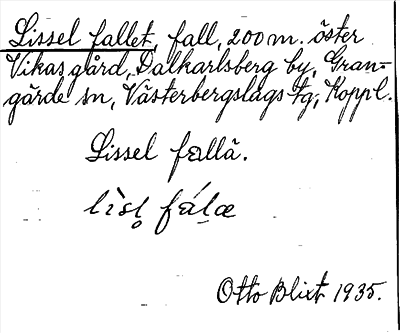 Lissel fallet, fall, 200 m. öster
Vikasgård, Dalkarlsberg by, Gran=
gärde sn, Västerbergslags tg, Koppl.
Lissel fællä.
lìsl̥ fǽl̲æ
Otto Blixt 1935.